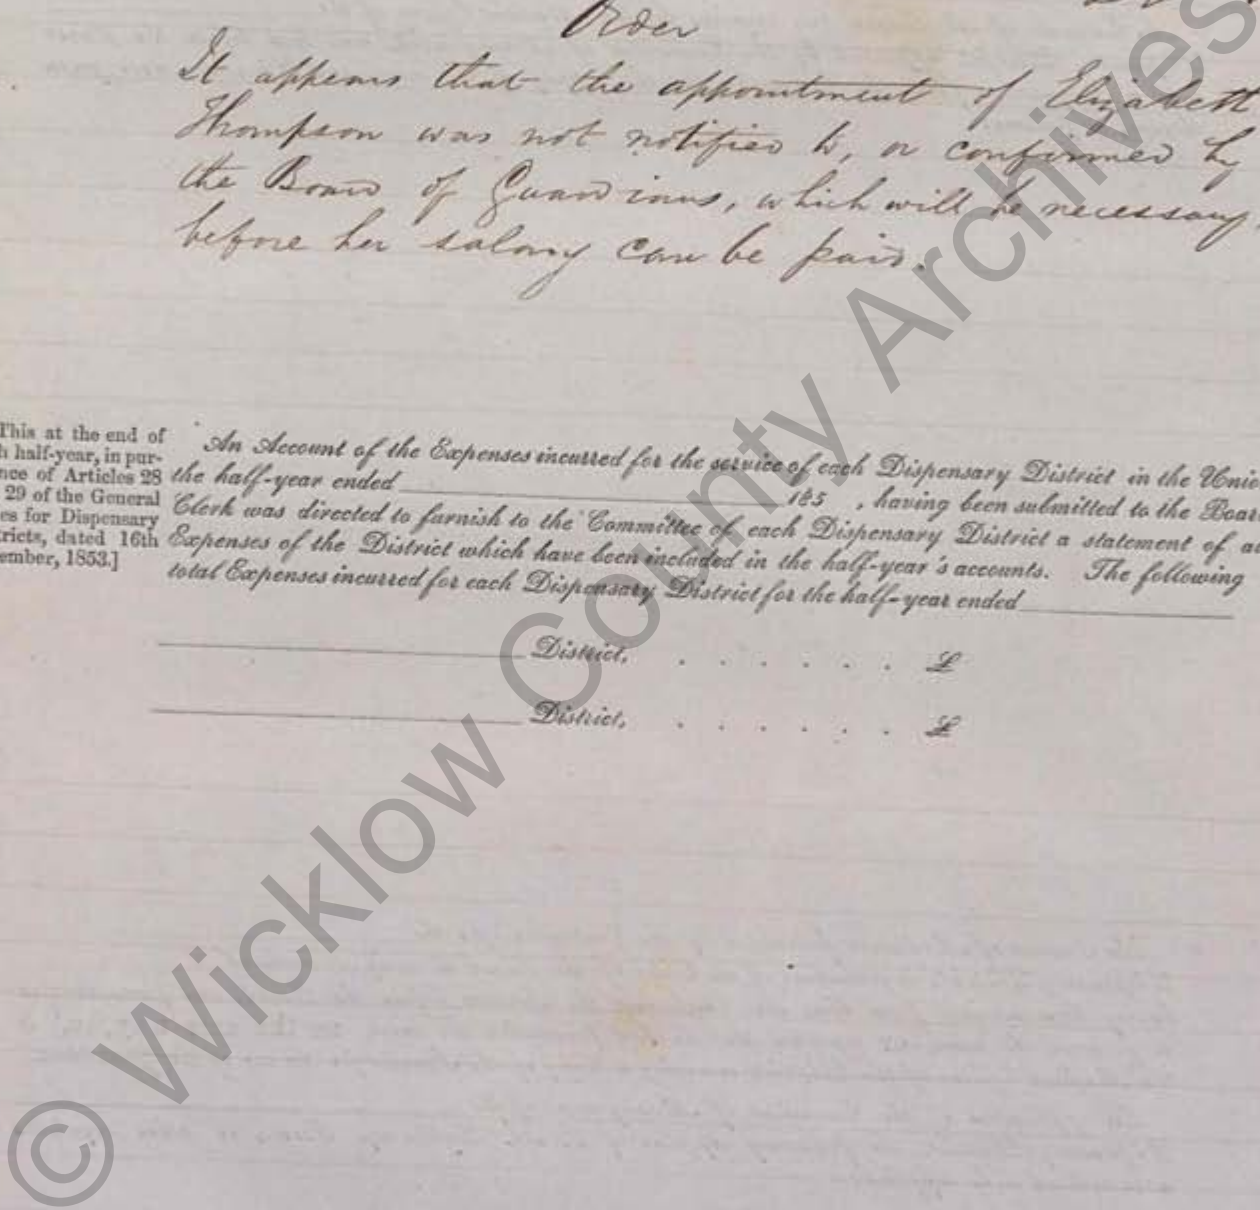 Order
It appears that the appointment of Elizabeth
Thompson was not notified to, or confirmed by
the Board of Guardians, which will be necessary
before her salary can be paid.
This at the end of
h half-year, in pur-
nce of Articles 28
29 of the General
es for Dispensary
tricts, dated 16th
ember, 1853.]
An Account of the Expenses incurred for the service of each Dispensary District in the Unio
the half-year ended 185 , having been submitted to the Boar
Clerk was directed to furnish to the Committee of each Dispensary District a statement of a
Expenses of the District which have been included in the half-year's accounts. The following
total Expenses incurred for each Dispensary District for the half-year ended
District, . . . . . . £
District, . . . . . . £
© Wicklow County Archives